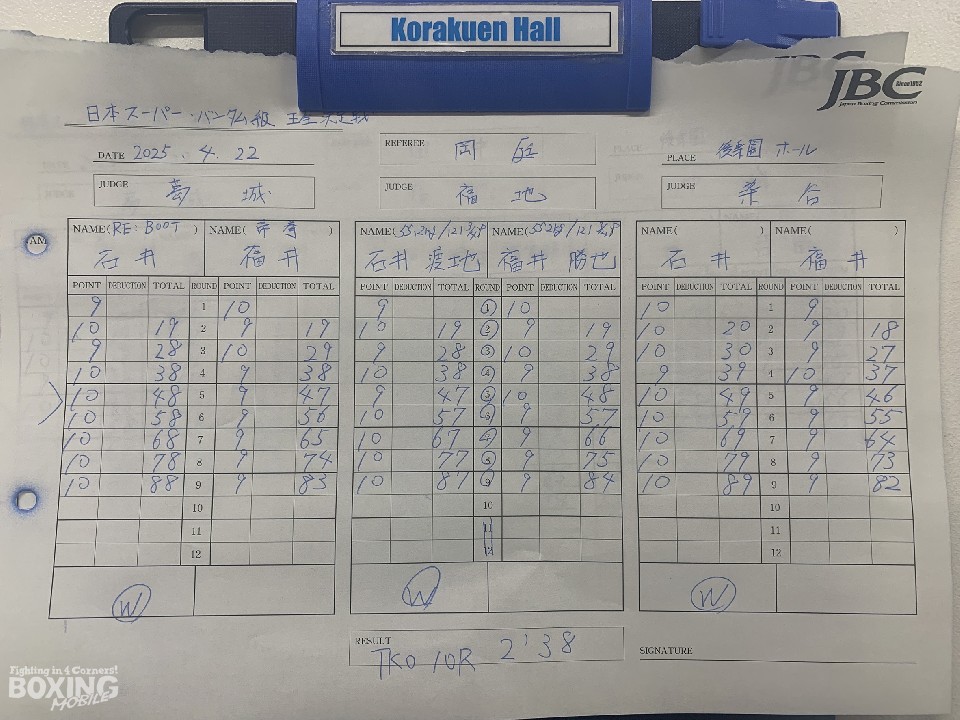 Korakuen Hall
JBC Since1952
Japan Boxing Commission
日本スーパー・バンタム級 王座決定戦
DATE 2025.4.22 REFEREE 岡 PLACE 後楽園ホール
JUDGE 葛城 JUDGE 福地 JUDGE 染谷
NAME(RE:BOOT) NAME() NAME(55.2kg/121 3/4P) NAME(55.2kg/121 3/4P) NAME() NAME()
AM
石井 福井 石井 渡士也 福井 勝也 石井 福井
POINT DEDUCTION TOTAL ROUND POINT DEDUCTION TOTAL POINT DEDUCTION TOTAL ROUND POINT DEDUCTION TOTAL POINT DEDUCTION TOTAL ROUND POINT DEDUCTION TOTAL
9 1 10 9 1 10 10 1 9
10 19 2 9 19 10 19 2 9 19 10 20 2 9 18
9 28 3 10 29 9 28 3 10 29 10 30 3 9 27
10 38 4 9 38 10 38 4 9 38 9 39 4 10 37
10 48 5 9 47 9 47 5 10 48 10 49 5 9 46
10 58 6 9 56 10 57 6 9 57 10 59 6 9 55
10 68 7 9 65 10 67 7 9 66 10 69 7 9 64
10 78 8 9 74 10 77 8 9 75 10 79 8 9 73
10 88 9 9 83 10 87 9 9 84 10 89 9 9 82
10 10 10
11 11 11
12 12 12
W W W
RESULT TKO 10R 2'38 SIGNATURE
Fighting in 4 Corners!
BOXING
MOBILE